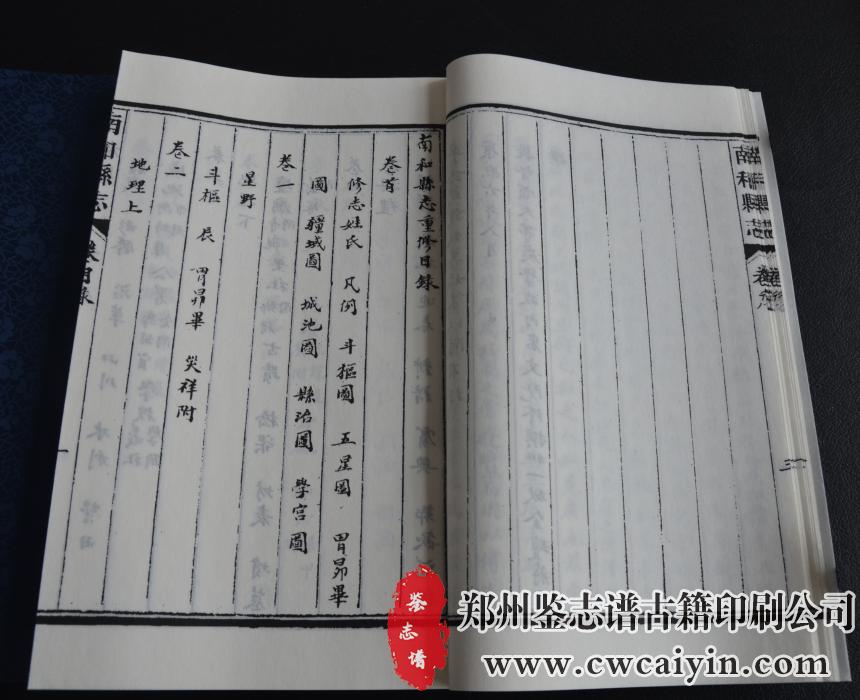 南和縣志重修目錄
卷首
修志姓氏 凡例 斗樞圖 五星圖 胃昴畢
圖 疆域圖 城池圖 縣治圖 學宮圖
卷一
星野
斗樞 辰 胃昴畢 災祥附
卷二
地理上
南和縣志
目錄
一
南和縣志
卷
二
鉴志谱
郑州鉴志谱古籍印刷公司
www.cwcaiyin.com